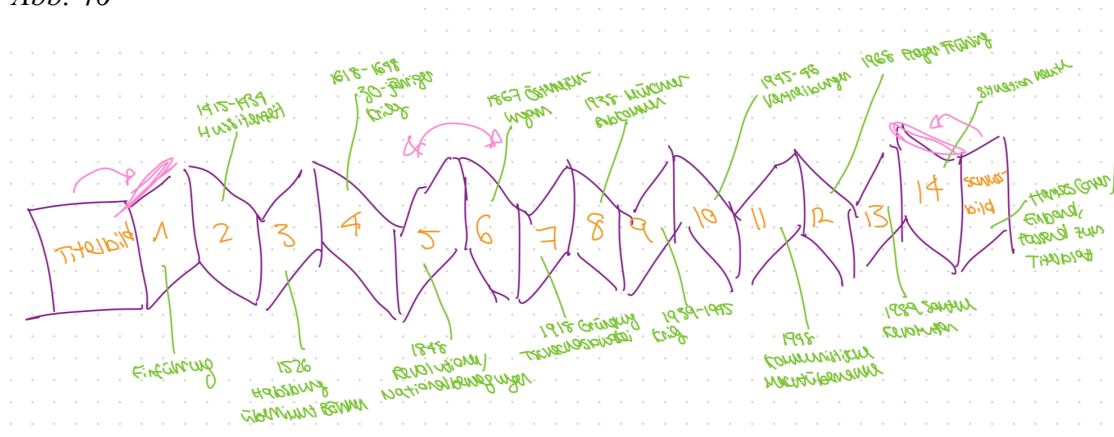 Abb. 40
1415-1434
Hussitenzeit
1618-1648
30-jähriger
Krieg
1867 Österreich-
Ungarn
1938 Münchner
Abkommen
1945-46
Vertreibungen
1968 Prager Frühling
Situation heute
Titelbild
1
2
3
4
5
6
7
8
9
10
11
12
13
14
Schluss-
bild
Hartes Cover/
Einband,
passend zum
Titelblatt
Einführung
1526
Habsburg
übernimmt Böhmen
1848
Revolutionen/
Nationalbewegungen
1918 Gründung
Tschechoslowakei
1939-1945
Krieg
1948
Kommunistische
Machtübernahme
1989 Samtene
Revolution